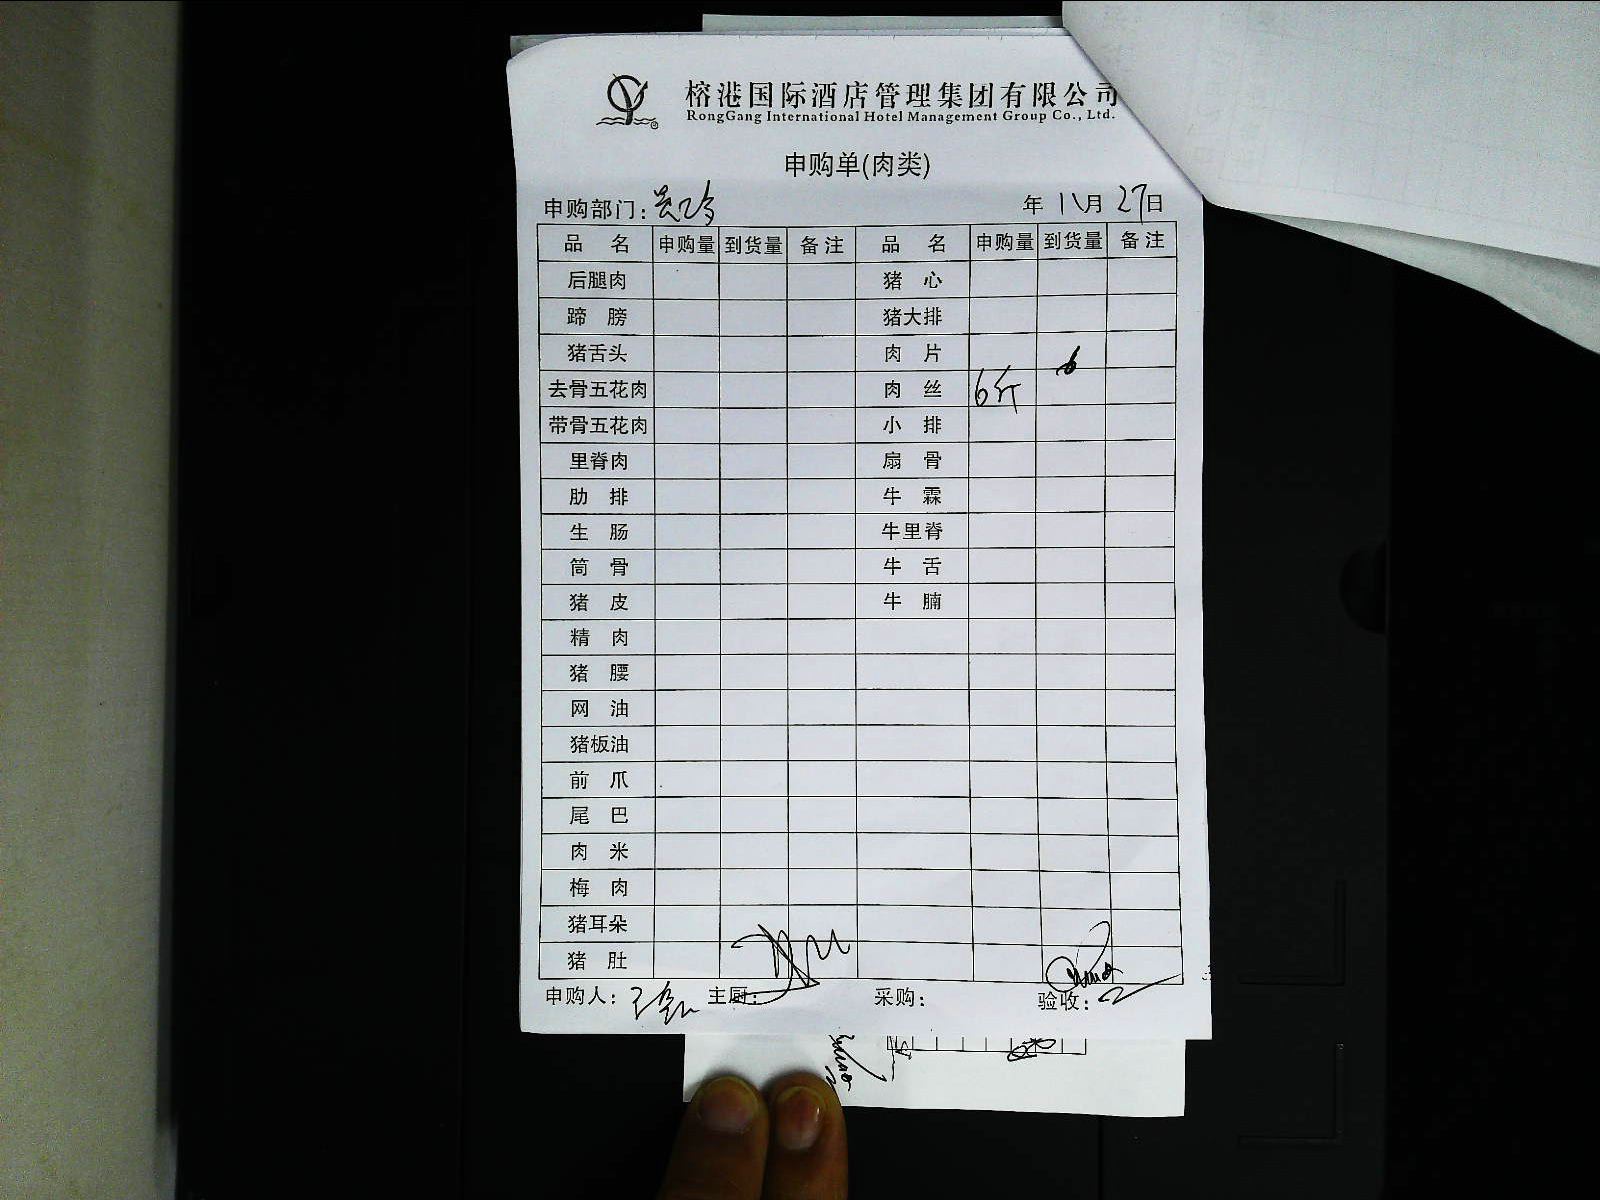 榕港国际酒店管理集团有限公司
RongGang International Hotel Management Group Co., Ltd.
申购单(肉类)
申购部门: 年 11月 27日
品 名 申购量 到货量 备注 品 名 申购量 到货量 备注
后腿肉 猪 心
蹄 膀 猪大排
猪舌头 肉 片 6
去骨五花肉 肉 丝 6斤
带骨五花肉 小 排
里脊肉 扇 骨
肋 排 牛 霖
生 肠 牛里脊
筒 骨 牛 舌
猪 皮 牛 腩
精 肉
猪 腰
网 油
猪板油
前 爪
尾 巴
肉 米
梅 肉
猪耳朵
猪 肚
申购人: 主厨: 采购: 验收: